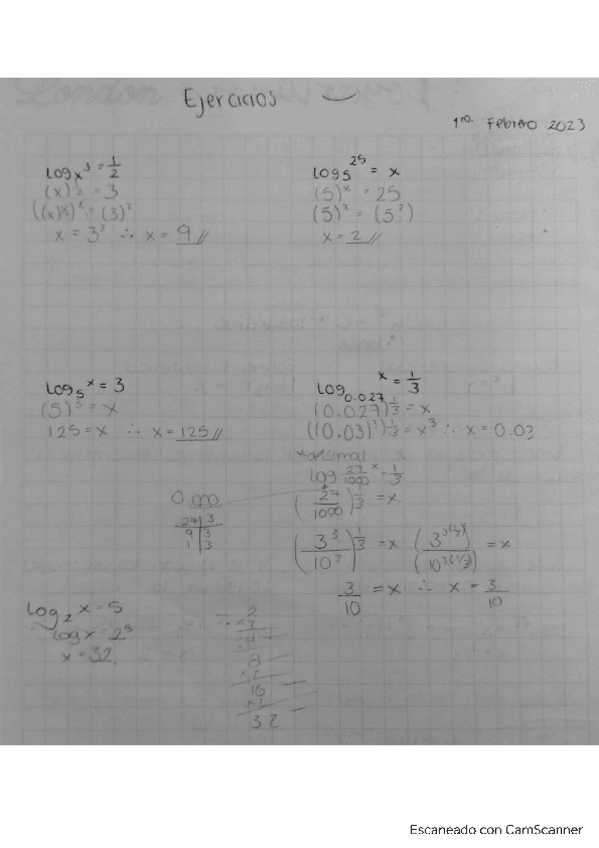 Ejercicios
1ro. Febrero 2023
log x ³ = 1/2
(x)^1/2 = 3
((x)^½)² = (3)²
x = 3² ∴ x = 9 //
log 5 ²⁵ = x
(5)^x = 25
(5)^x = (5²)
x = 2 //
log₅ ˣ = 3
(5)³ = x
125 = x ∴ x = 125 //
log 0.027 ˣ = 1/3
(0.027)^1/3 = x
((0.03)³)^1/3 = x³ ∴ x = 0.03
log 27/1000 ˣ = 1/3
(27/1000)^1/3 = x
(3³/10³)^1/3 = x (3^3(1/3)/10^3(1/3)) = x
3/10 = x ∴ x = 3/10
0.000
27 | 3
9 | 3
1 | 3
log₂ x = 5
log x = 2⁵
x = 32
2
8
16
32
Escaneado con CamScanner